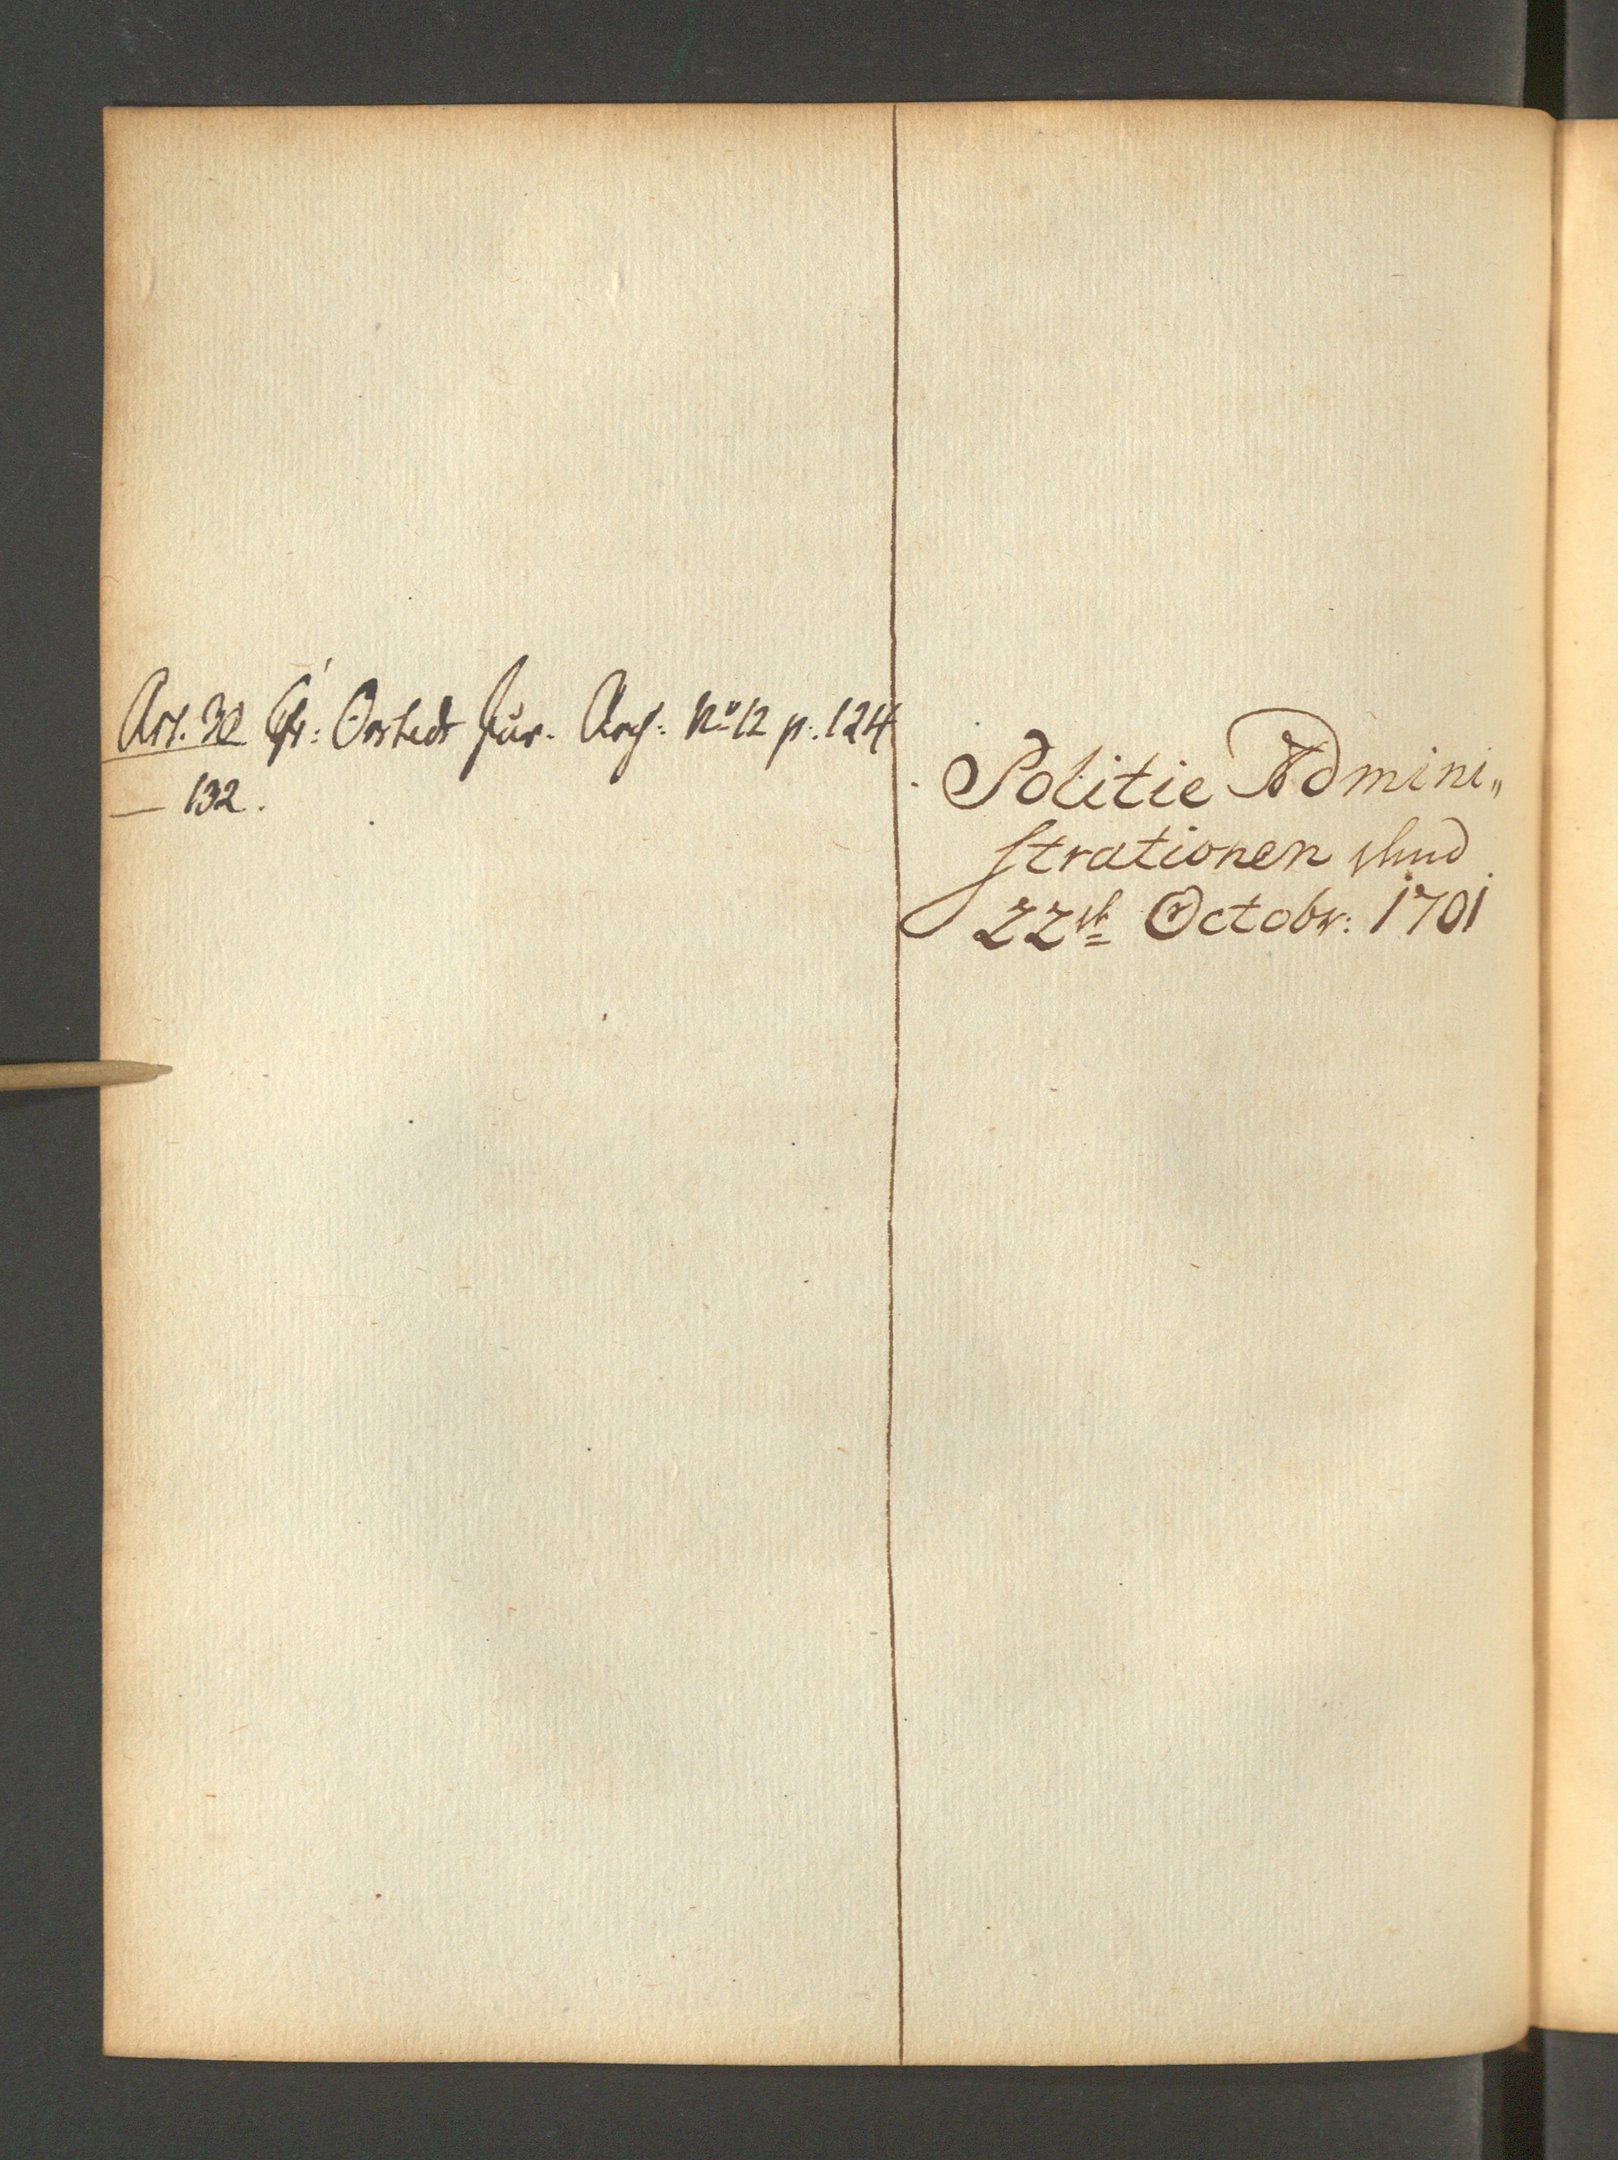 Art. 30 Cfr: Ørsteds Jur. Arch: No 12 p. 124
— 132.
Politie Admini„
strationen
22de Octobr: 1701